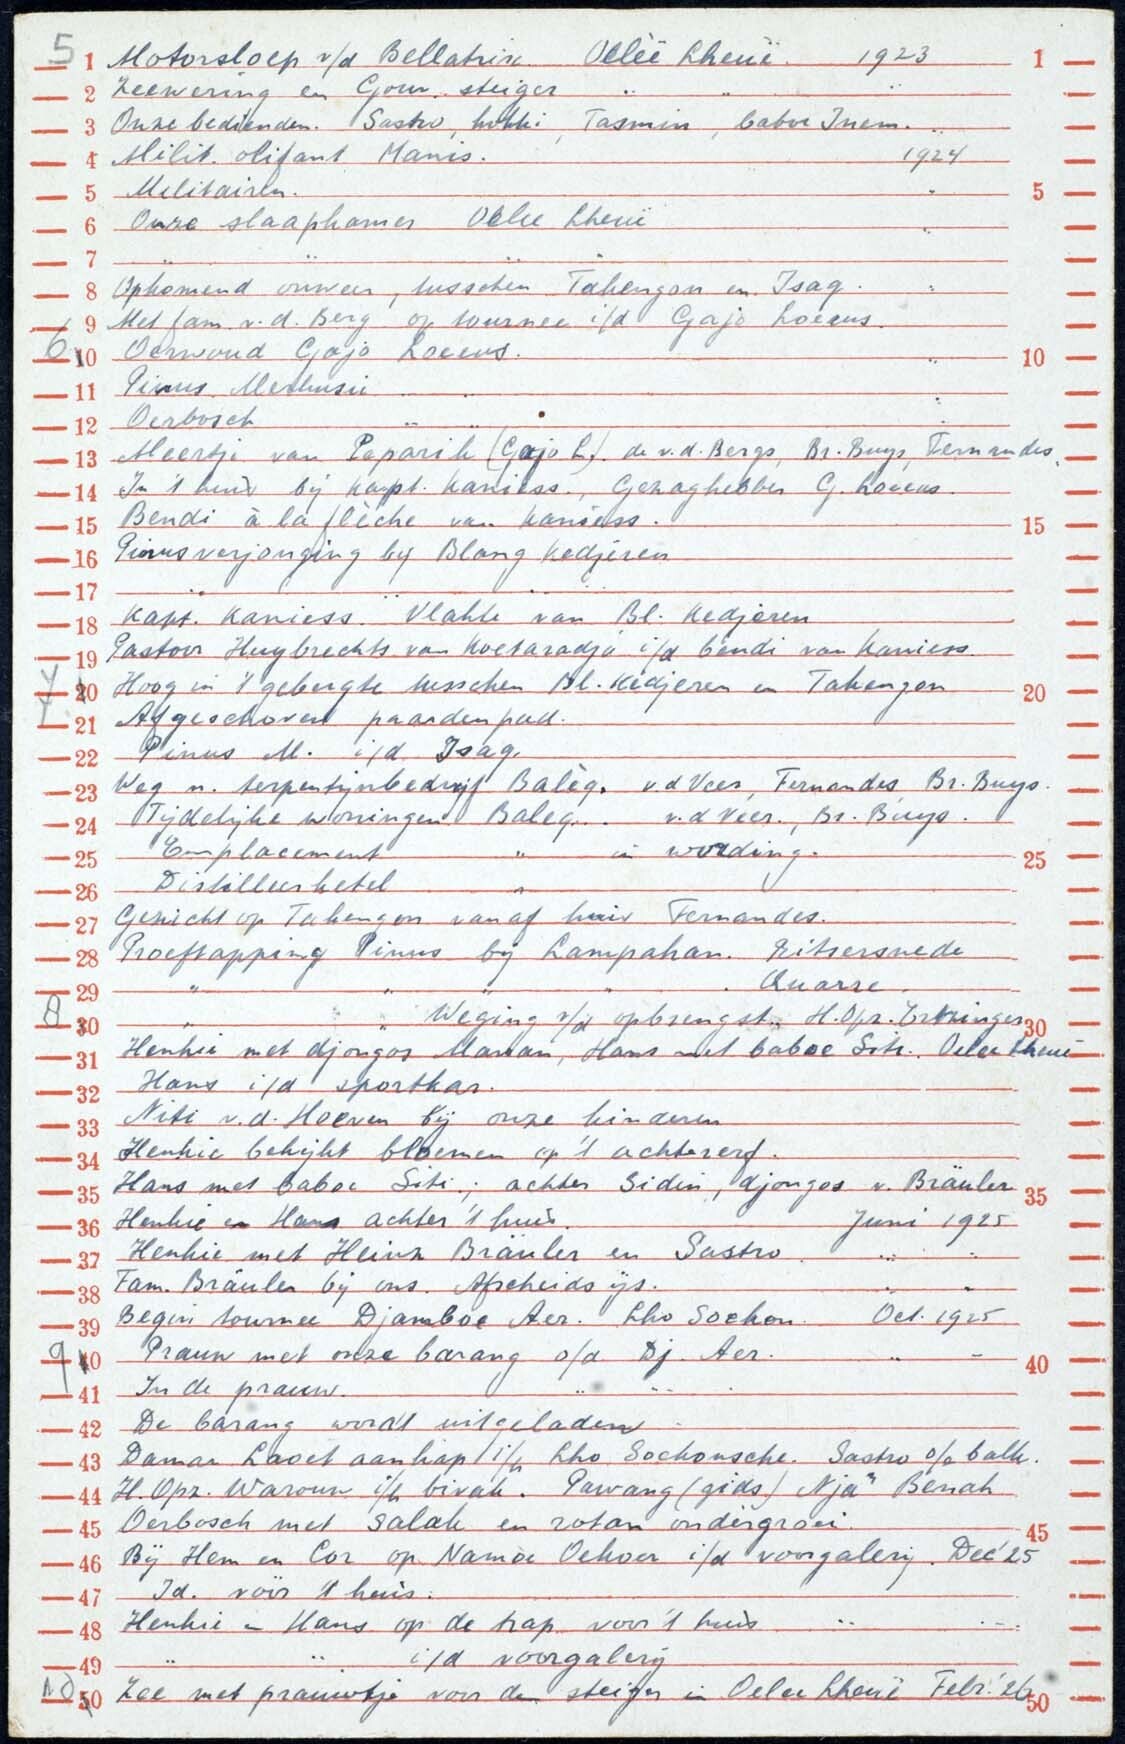 5
1 Motorsloep v/d Bellatrix Oeleë Lheuë. 1923 1
2 Zeewering en Gouv. steiger " " "
3 Onze bedienden. Sastro, kokki, Tasmin, baboe Inem. "
4 Milit. olifant Manis. 1924
5 Militairen. " 5
6 Onze slaapkamer Oelee Lheuë "
7 " " " "
8 Opkomend onweer, tusschen Takengon en Isaq. "
9 Met fam. v.d. Berg op tournee i/d Gajo Loeeus.
6 10 Oerwoud Gajo Loeeus. " 10
11 Pinus Merkusii " "
12 Oerbosch " " "
13 Meertje van Peparik (Gajo L.). de v.d. Bergs, Br. Buys, Fernandes.
14 In 't huis bij kapt. Kaniess., Gezaghebber G. Loeeus.
15 Bendi à la flèche van Kaniess. 15
16 Pinusverjonging bij Blang Kedjeren
17 " " " "
18 Kapt. Kaniess. Vlakte van Bl. Kedjeren
19 Pastoor Huybrechts van Koetaradja i/d bendi van Kaniess.
7 20 Hoog in 't gebergte tusschen Bl. Kedjeren en Takengon 20
21 Afgeschoven paardenpad.
22 Pinus M. i/d Isaq.
23 Weg n. terpentijnbedrijf Balèq. v.d Veer, Fernandes, Br. Buys.
24 Tijdelijke woningen Baleq. v.d Veer., Br. Buys.
25 Emplacement " in wording. 25
26 Distilleerketel "
27 Gezicht op Takengon vanaf huis Fernandes.
28 Proeftapping Pinus bij Lampahan. Ritsersnede
29 " " " " Quarre
8 30 " " Weging v/d opbrengst. H.Opz. Ertzinger 30
31 Henkie met djongos Marwan, Hans met baboe Siti. Oelee Lheuë
32 Hans i/d sportkar.
33 Niti v.d. Hoeven bij onze kinderen
34 Henkie bekijkt bloemen op 't achtererf.
35 Hans met baboe Siti; achter Sidin, djongos v. Bräuler 35
36 Henkie en Hans achter 't huis. Juni 1925
37 Henkie met Heinz Bräuler en Sastro " "
38 Fam. Bräuler bij ons. Afscheids ijs. " "
39 Begin tournee Djamboe Aer. Lho Soekon. Oct. 1925
9 40 Prauw met onze barang o/d Dj. Aer. " " 40
41 In de prauw. " " "
42 De barang wordt uitgeladen
43 Damar Laoet aankap i/h Lho Soekonsche. Sastro o/e balk.
44 H. Opz. Warouw i/h bivak. Pawang (gids) Nja" Benah
45 Oerbosch met salak en rotan ondergroei. 45
46 Bij Hem en Cor op Namoe Oekoer i/d voorgalerij. Dec '25
47 Id. vóór 't huis.
48 Henkie en Hans op de trap voor 't huis " "
49 " " i/d voorgalerij
10 50 Zee met prauwtje voor den steiger in Oelee Lheuë Febr. '26 50